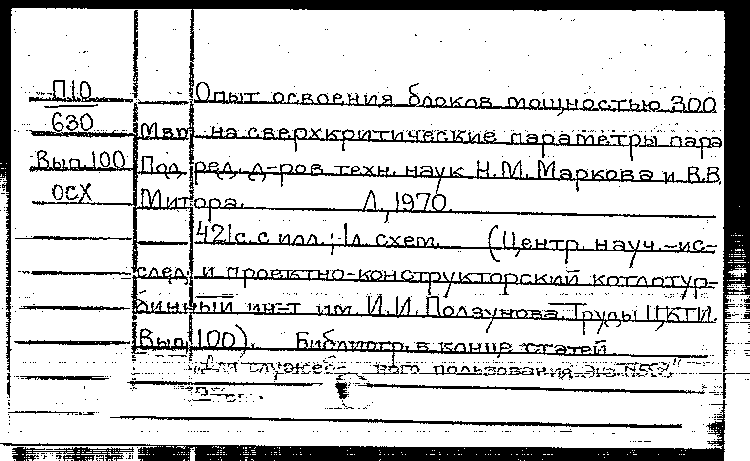 П10 Опыт освоения блоков мощностью 300
630 Мвт на сверхкритические параметры пара
Вып.100 Под ред. д-ров техн. наук Н.М. Маркова и В.В.
ОСХ Митора. Л., 1970.
421с. с илл.; 1л. схем. (Центр. науч.-ис-
след. и проектно-конструкторский котлотур-
бинный ин-т им. И.И. Ползунова. Труды ЦКТИ.
Вып. 100). Библиогр. в конце статей
"Для служебного пользования"